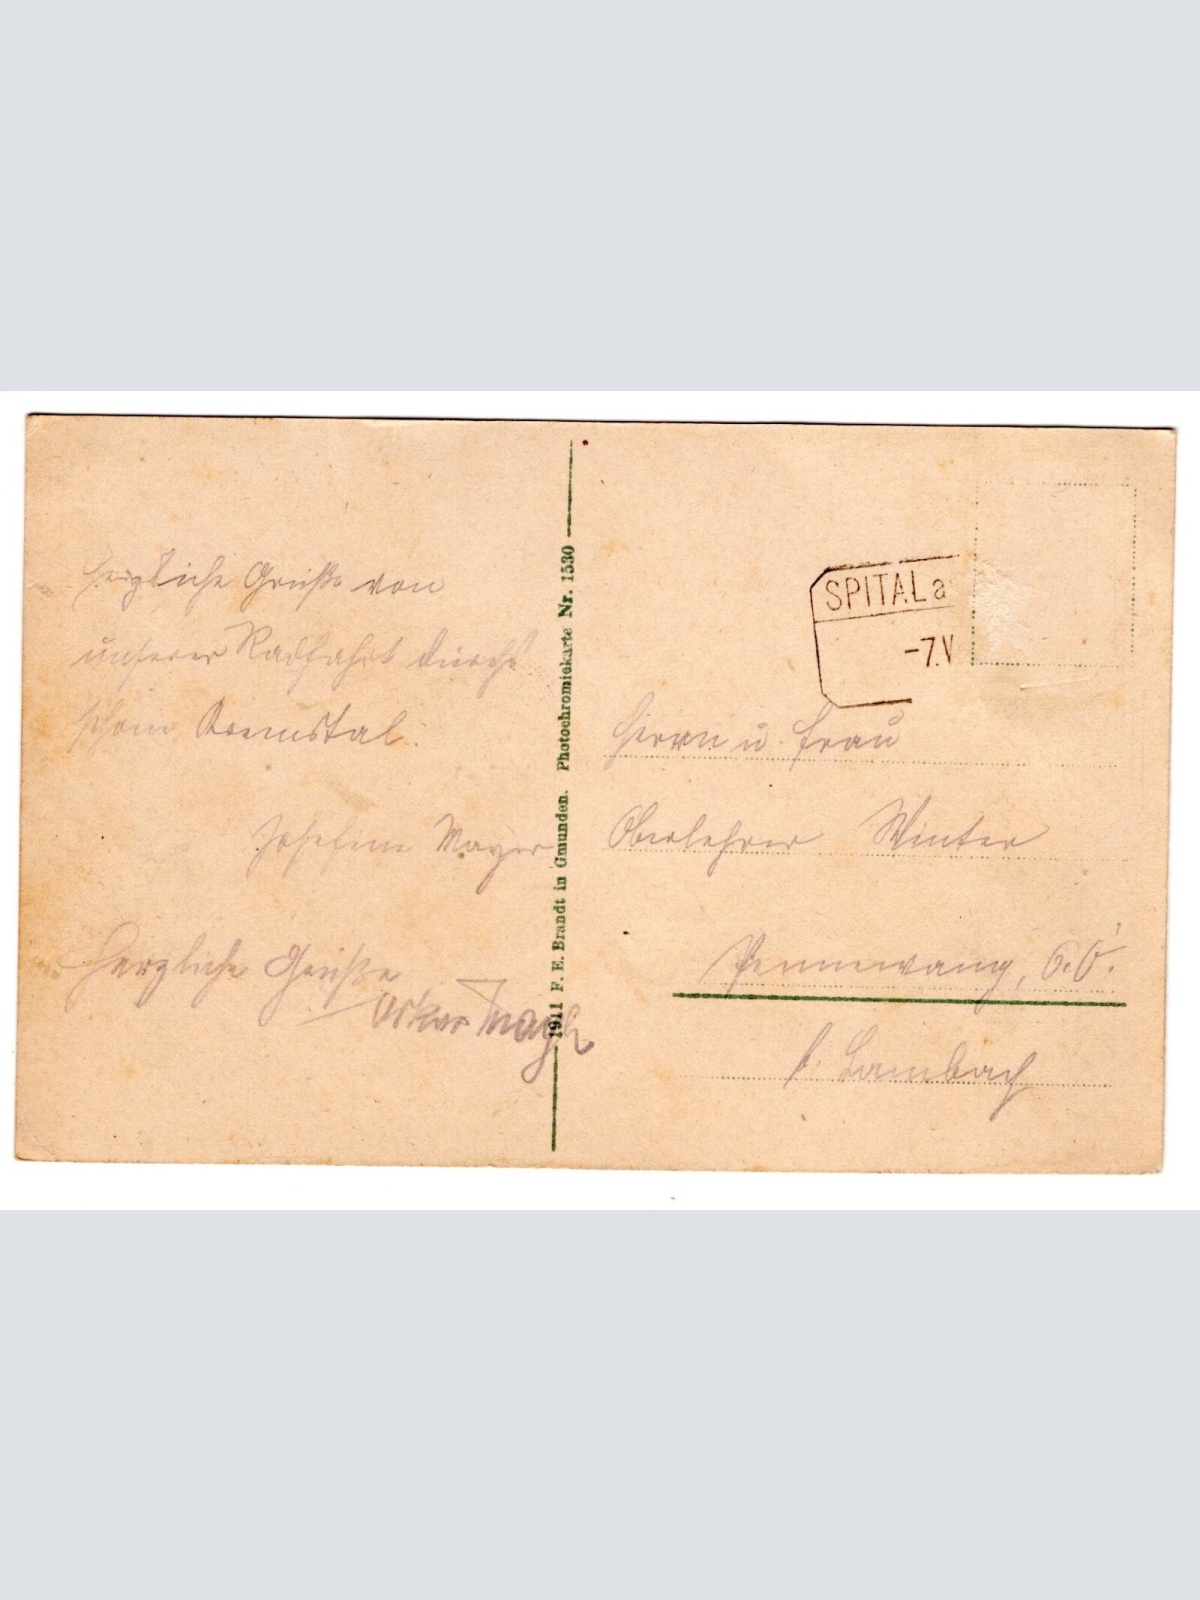 Herzliche Grüße von
unserer Radfahrt durchs
schöne Kremstal.
Josefine Mayer
Herzliche Grüße
Oskar Mayr
1911 F. E. Brandt in Gmunden. Photochromiekarte Nr. 1530
SPITAL a
-7.V
Herrn u. Frau
Oberlehrer Winter
Pennewang, O.Ö.
b. Lambach